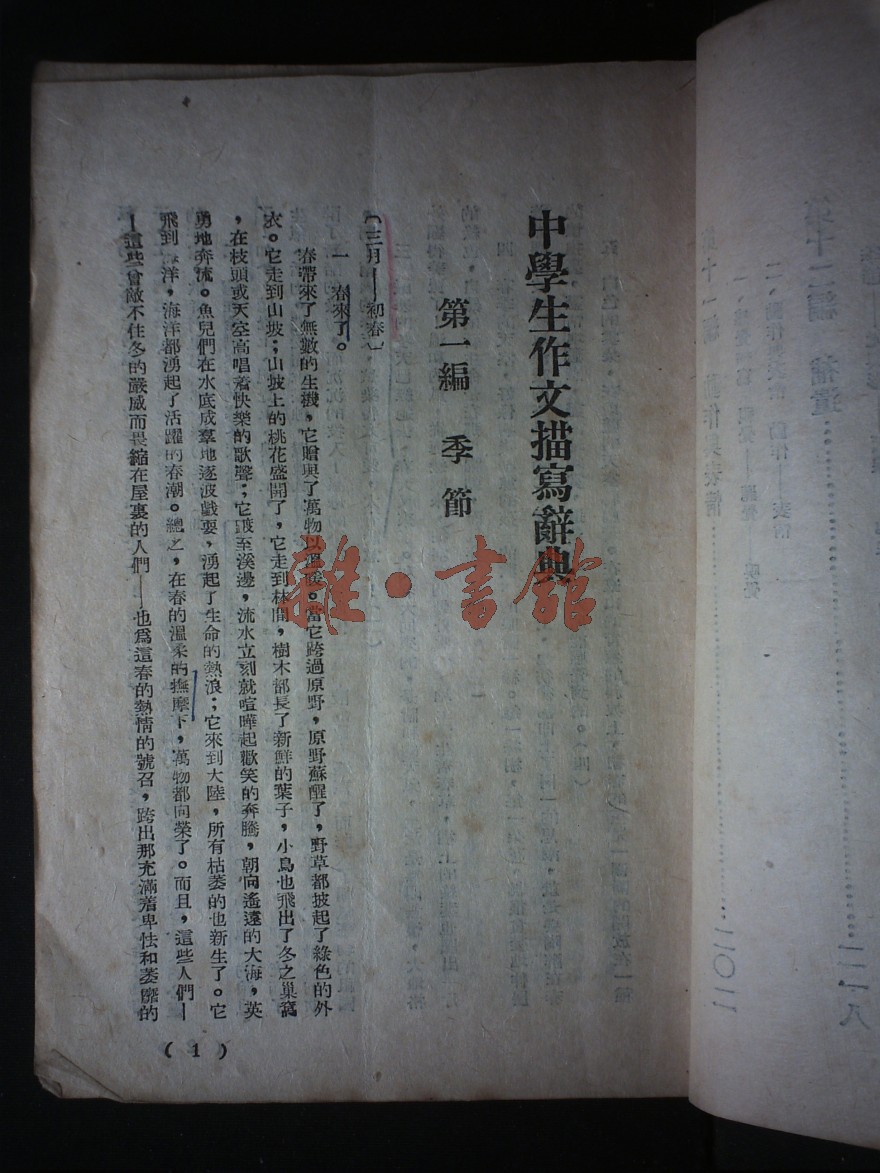 中學生作文描寫辭典
第一編 季節
〔三月——初春〕
一 春來了。
春帶來了無數的生機，它贈與了萬物以溫暖。當它跨過原野，原野蘇醒了，野草都披起了綠色的外
衣。它走到山坡；山坡上的桃花盛開了，它走到林間，樹木都長了新鮮的葉子，小鳥也飛出了冬之巢窩
，在枝頭或天空高唱着快樂的歌聲；它踱至溪邊，流水立刻就喧嘩起歡笑的奔騰，朝向遙遠的大海，英
勇地奔流。魚兒們在水底成羣地逐波戲耍，湧起了生命的熱浪；它來到大陸，所有枯萎的也新生了。它
飛到海洋，海洋都湧起了活躍的春潮。總之，在春的溫柔的撫摩下，萬物都向榮了。而且，這些人們—
—這些曾敵不住冬的嚴威而畏縮在屋裏的人們——也爲這春的熱情的號召，跨出那充滿着卑怯和萎靡的
( 1 )
雜·書館
第十二編 補遺
二一八
二〇二